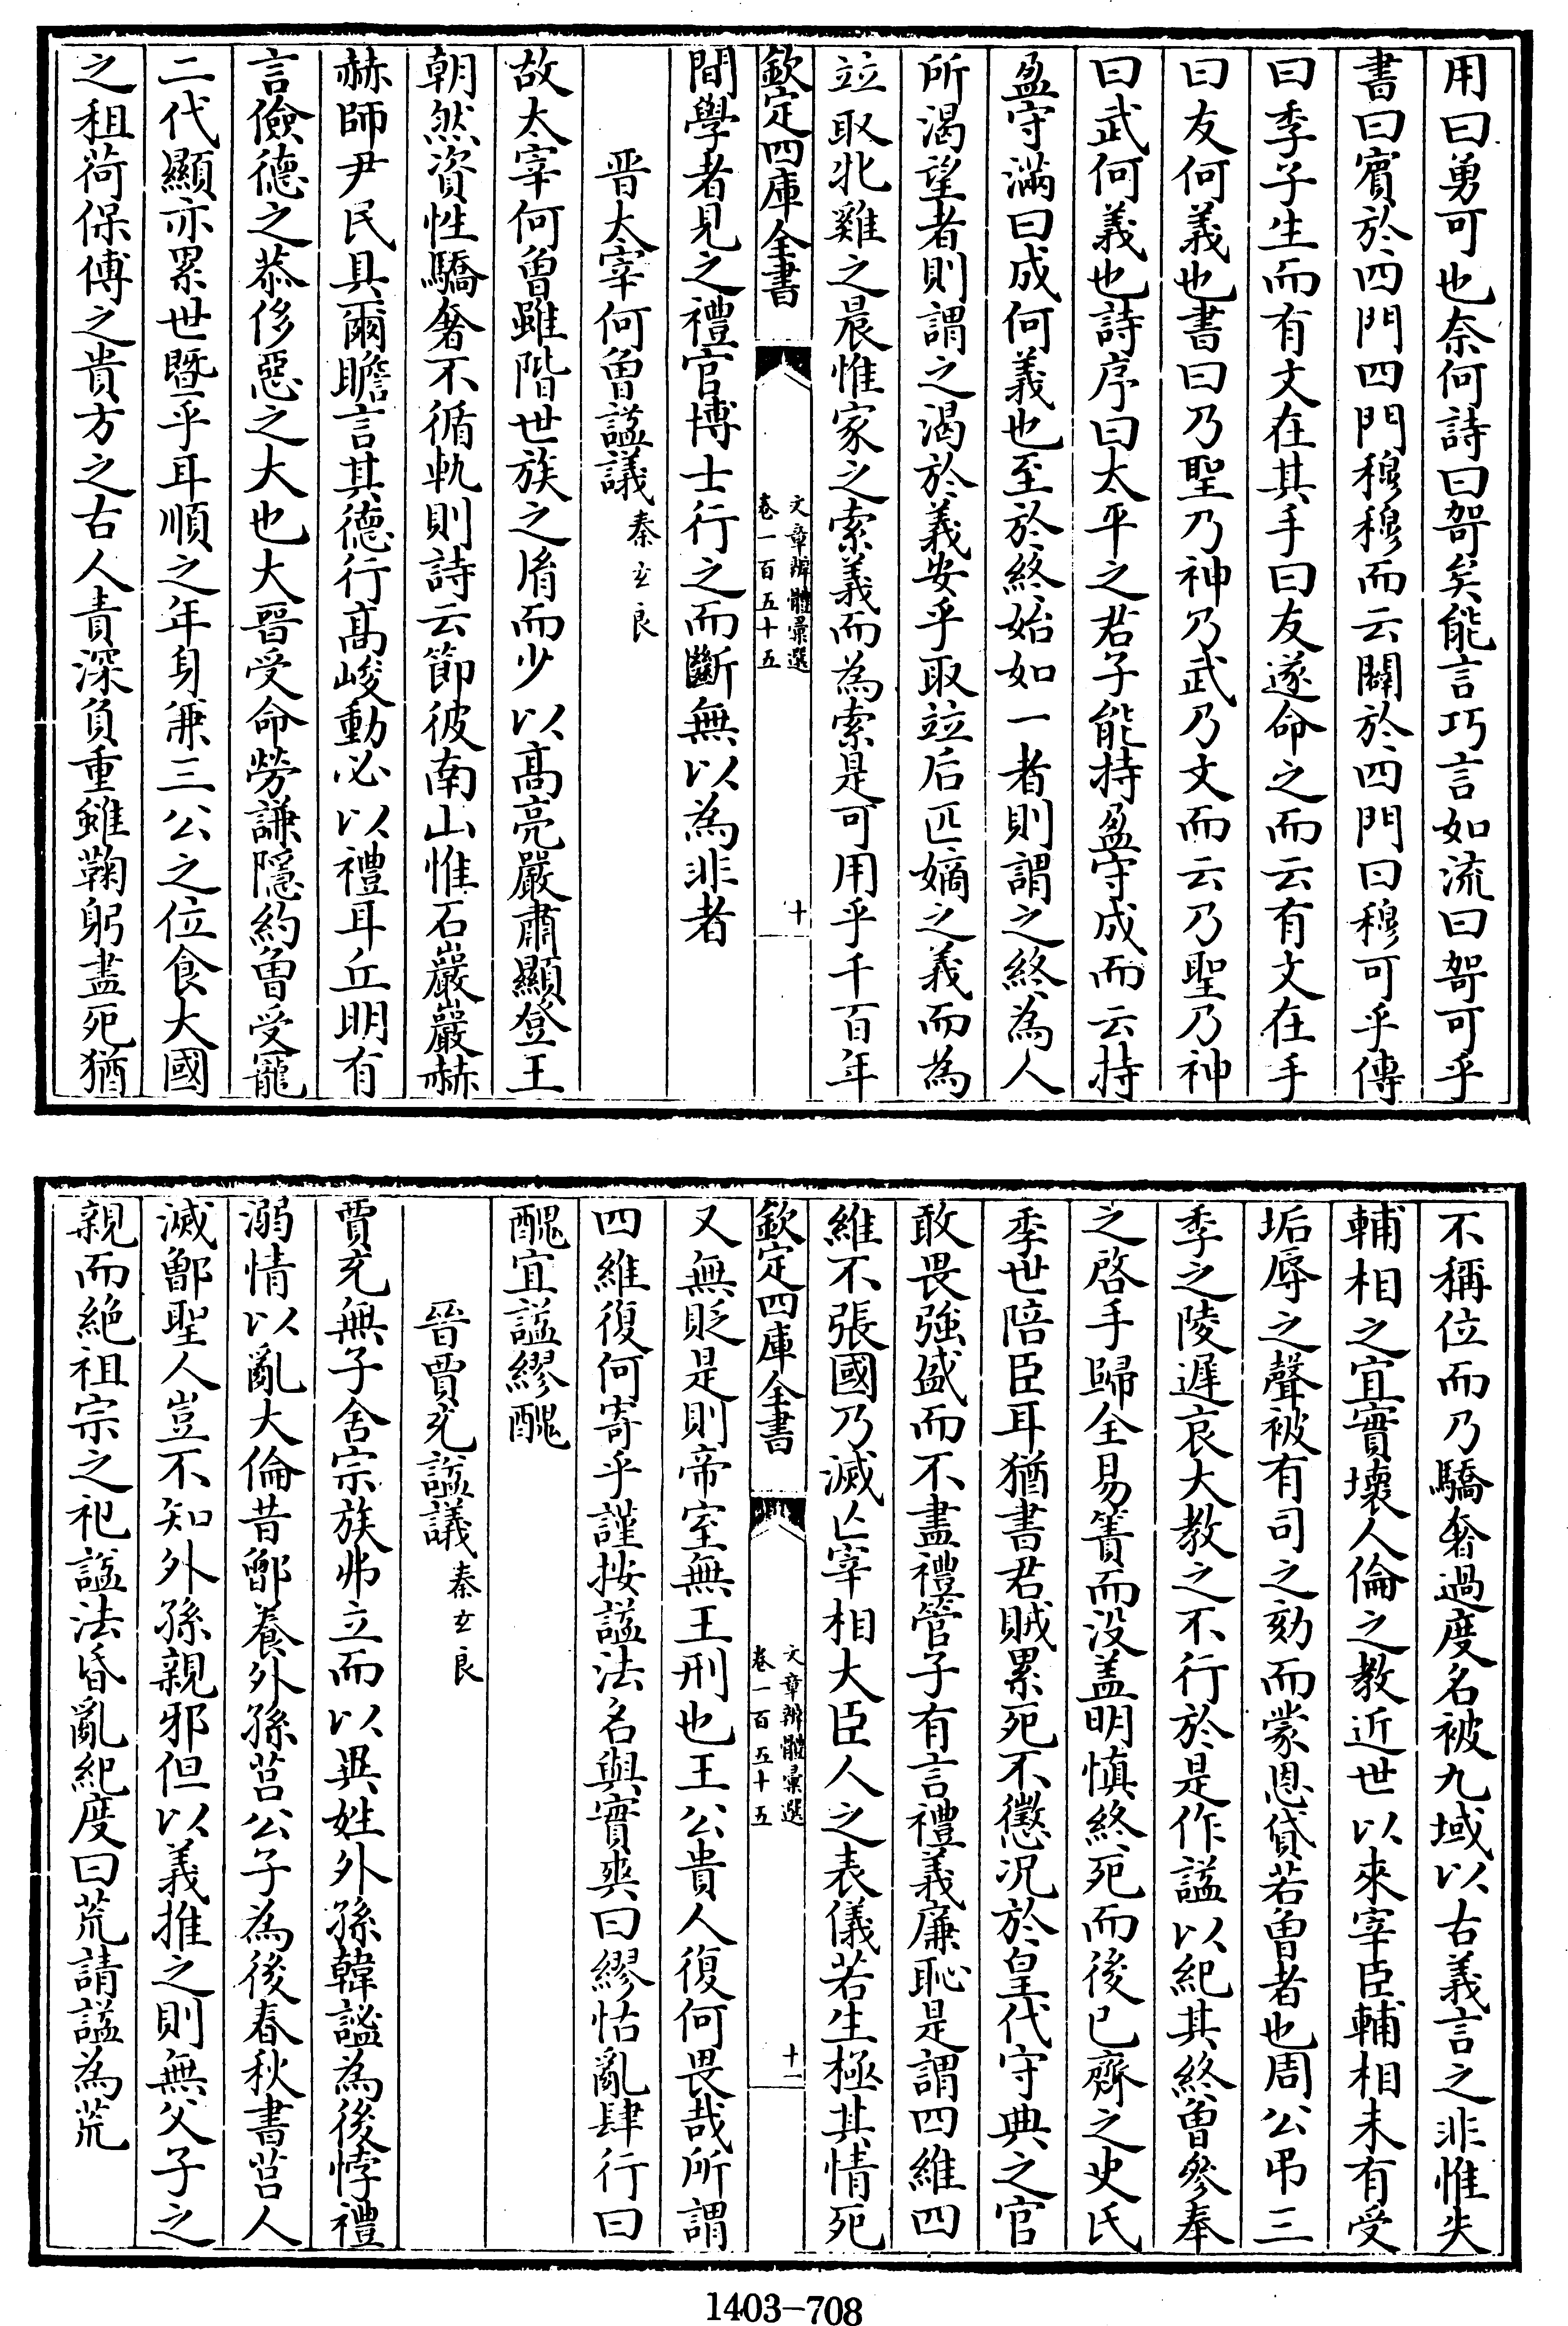 用曰勇可也奈何詩曰哿矣能言巧言如流曰哿可乎
書曰賔於四門四門穆穆而云闢於四門曰穆可乎傳
曰季子生而有文在其手曰友遂命之而云有文在手
曰友何義也書曰乃聖乃神乃武乃文而云乃聖乃神
曰武何義也詩序曰太平之君子能持盈守成而云持
盈守滿曰成何義也至於終始如一者則謂之終為人
所渴望者則謂之渴於義安乎取竝后匹嫡之義而為
竝取牝雞之晨惟家之索義而為索是可用乎千百年
欽定四庫全書
文章辨體彙選
卷一百五十五
十
間學者見之禮官博士行之而斷無以為非者
晋太宰何曽諡議秦玄良
故太宰何曽雖階世族之㣧而少以髙亮嚴肅顯登王
朝然資性驕奢不循軌則詩云節彼南山惟石巖巖赫
赫師尹民具爾瞻言其德行髙峻動必以禮耳丘明有
言儉德之恭侈惡之大也大晉受命勞謙隱約曽受寵
二代顯亦累世暨乎耳順之年身兼三公之位食大國
之租荷保傅之貴方之古人責深負重雖鞠躬盡死猶
不稱位而乃驕奢過度名被九域以古義言之非惟失
輔相之宜實壞人倫之教近世以來宰臣輔相未有受
垢辱之聲被有司之劾而蒙恩貸若曽者也周公弔三
季之陵遲哀大教之不行於是作諡以紀其終曽參奉
之啓手歸全易簀而没盖明慎終死而後已齊之史氏
季世陪臣耳猶書君賊累死不懲况於皇代守典之官
敢畏強盛而不盡禮管子有言禮義廉恥是謂四維四
維不張國乃滅亡宰相大臣人之表儀若生極其情死
欽定四庫全書
文章辨體彙選
卷一百五十五
十一
又無貶是則帝室無王刑也王公貴人復何畏哉所謂
四維復何寄乎謹按諡法名與實爽曰繆怙亂肆行曰
醜宜諡繆醜
晉賈充諡議秦玄良
賈充無子舍宗族弗立而以異姓外孫韓謐為後悖禮
溺情以亂大倫昔鄫養外孫莒公子為後春秋書莒人
滅鄫聖人豈不知外孫親邪但以義推之則無父子之
親而絶祖宗之祀諡法昏亂紀度曰荒請諡為荒
1403-708